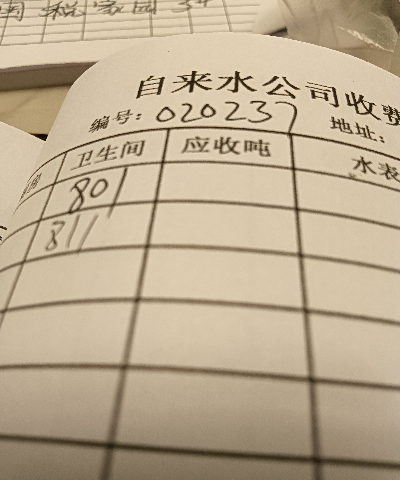 税家园 34
自来水公司收费
编号: 020237 地址:
卫生间 应收吨 水表
801
811